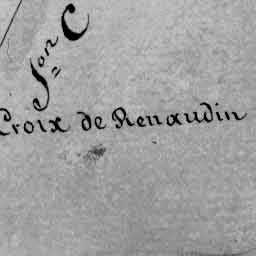 S.on C
Croix de Renaudin